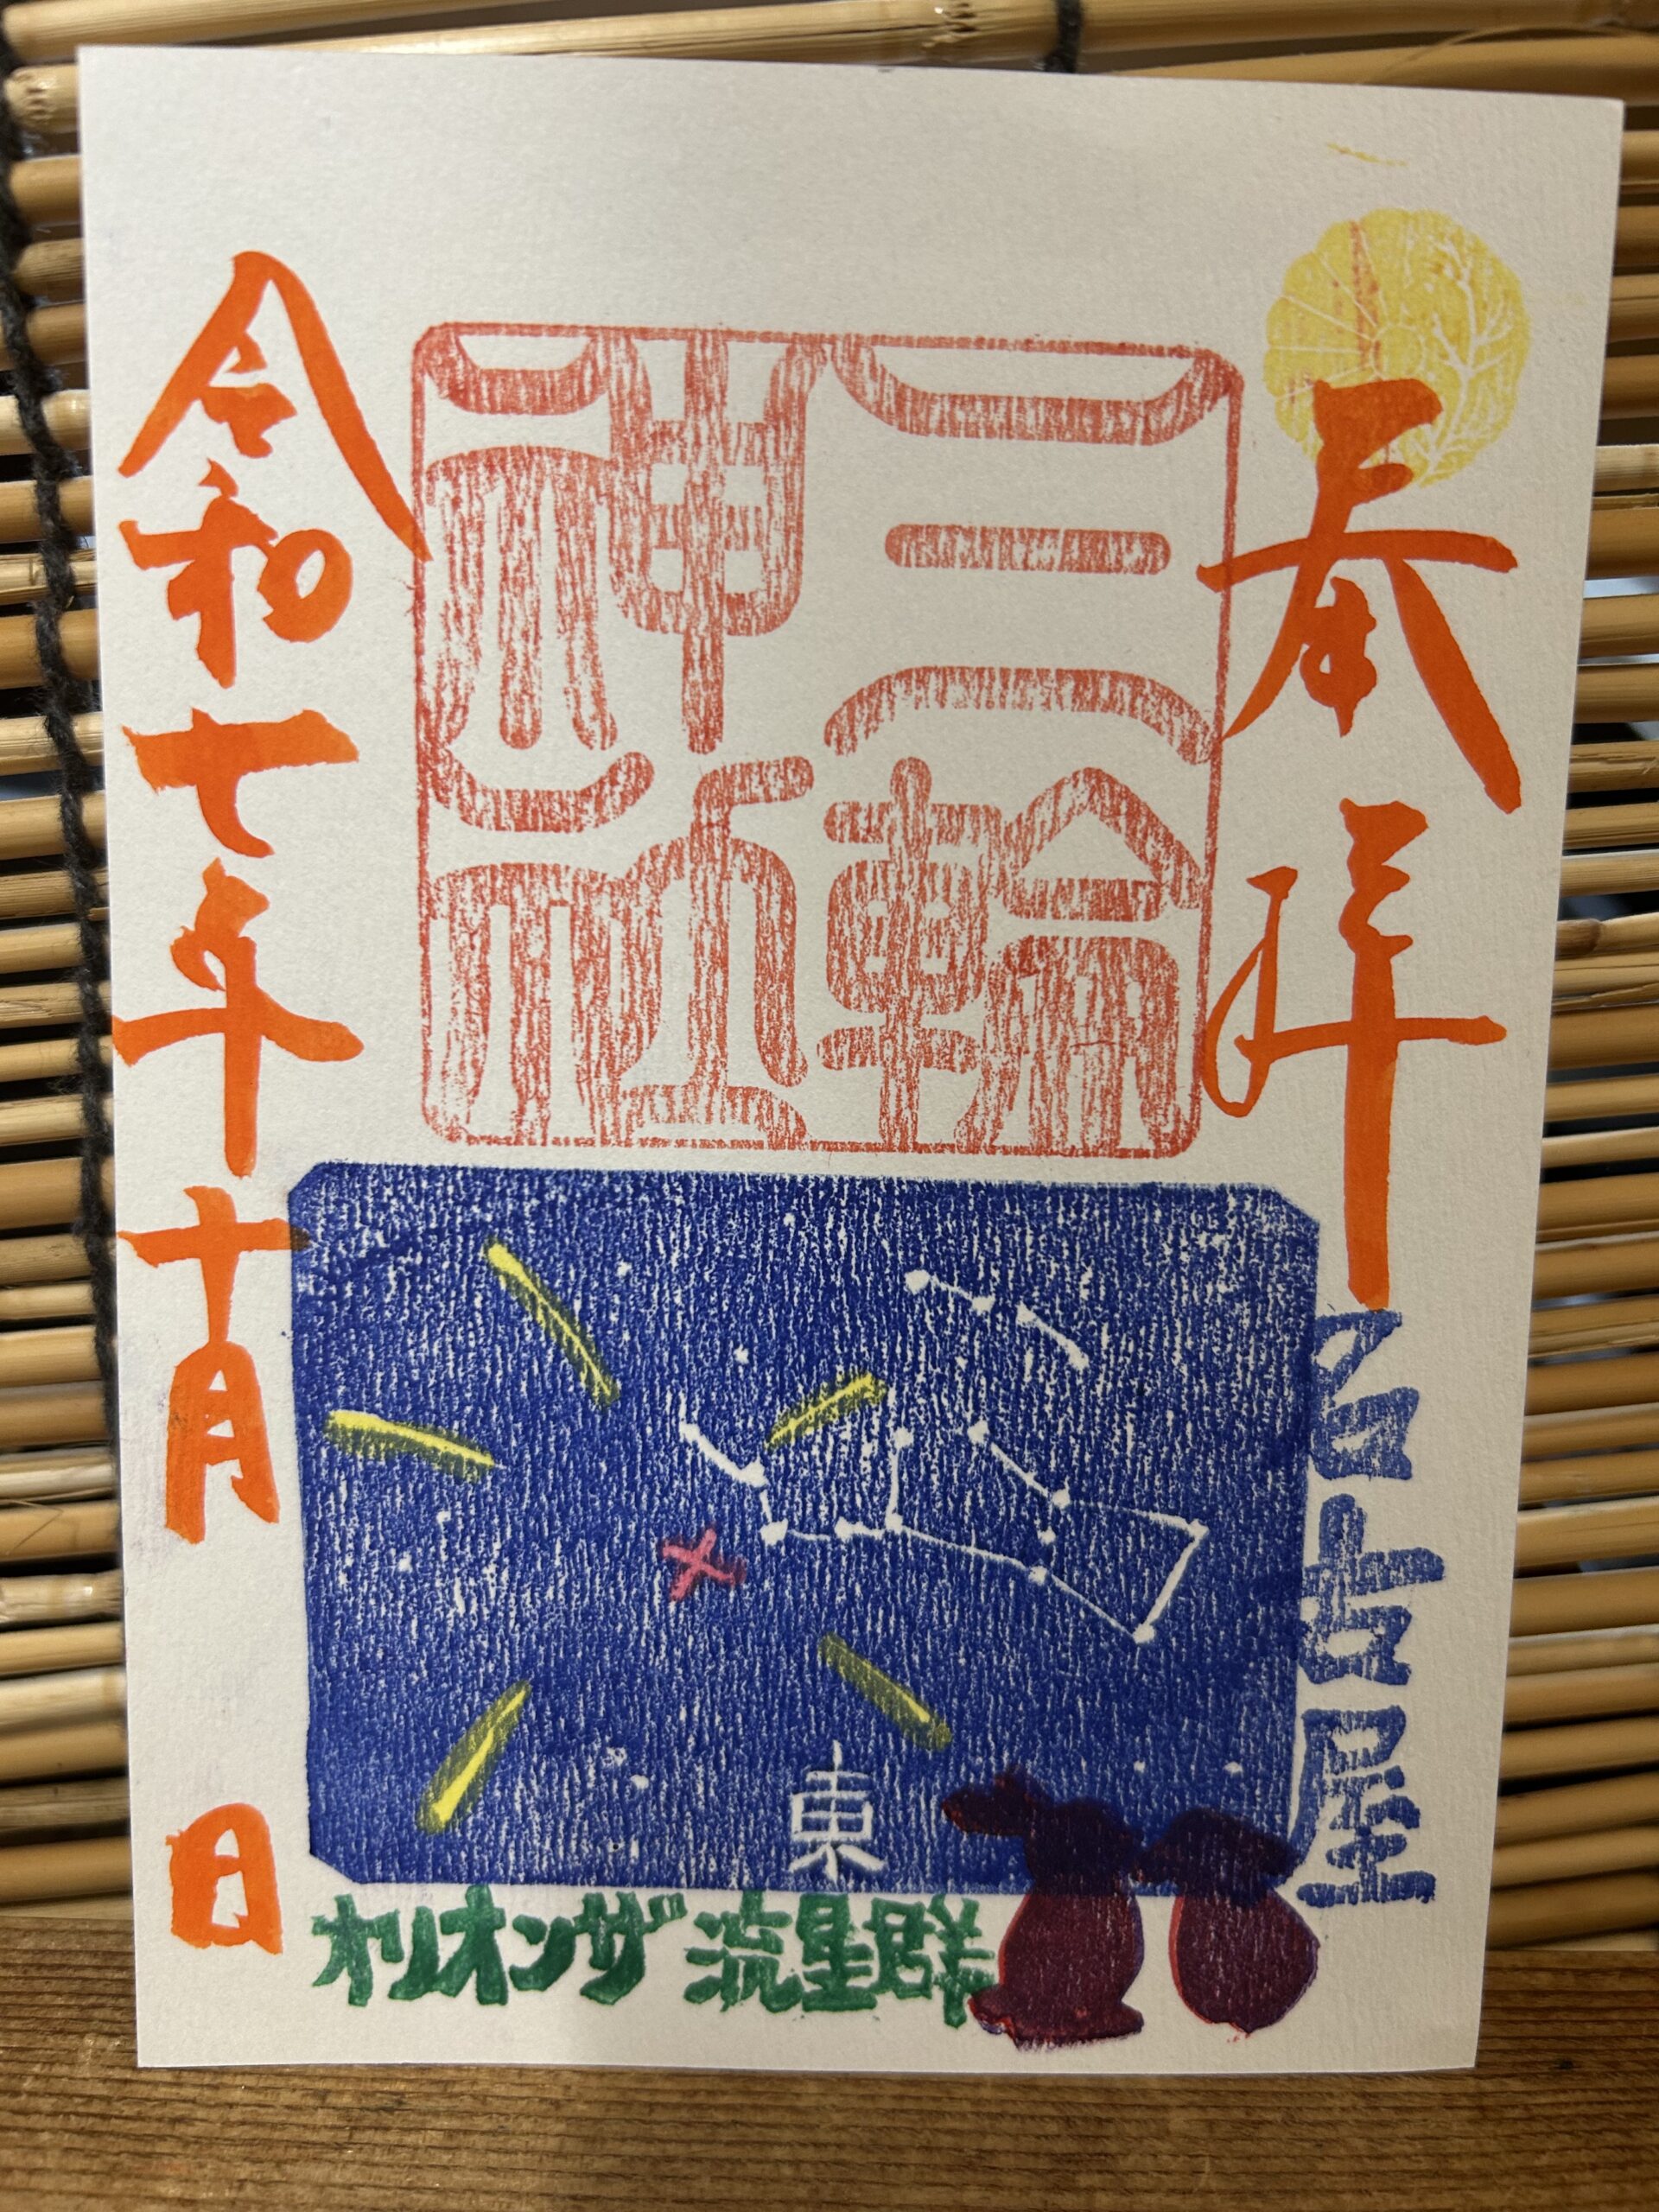 奉拝
名古屋
三輪
神社
令和七年十月 日
東
オリオンザ流星群